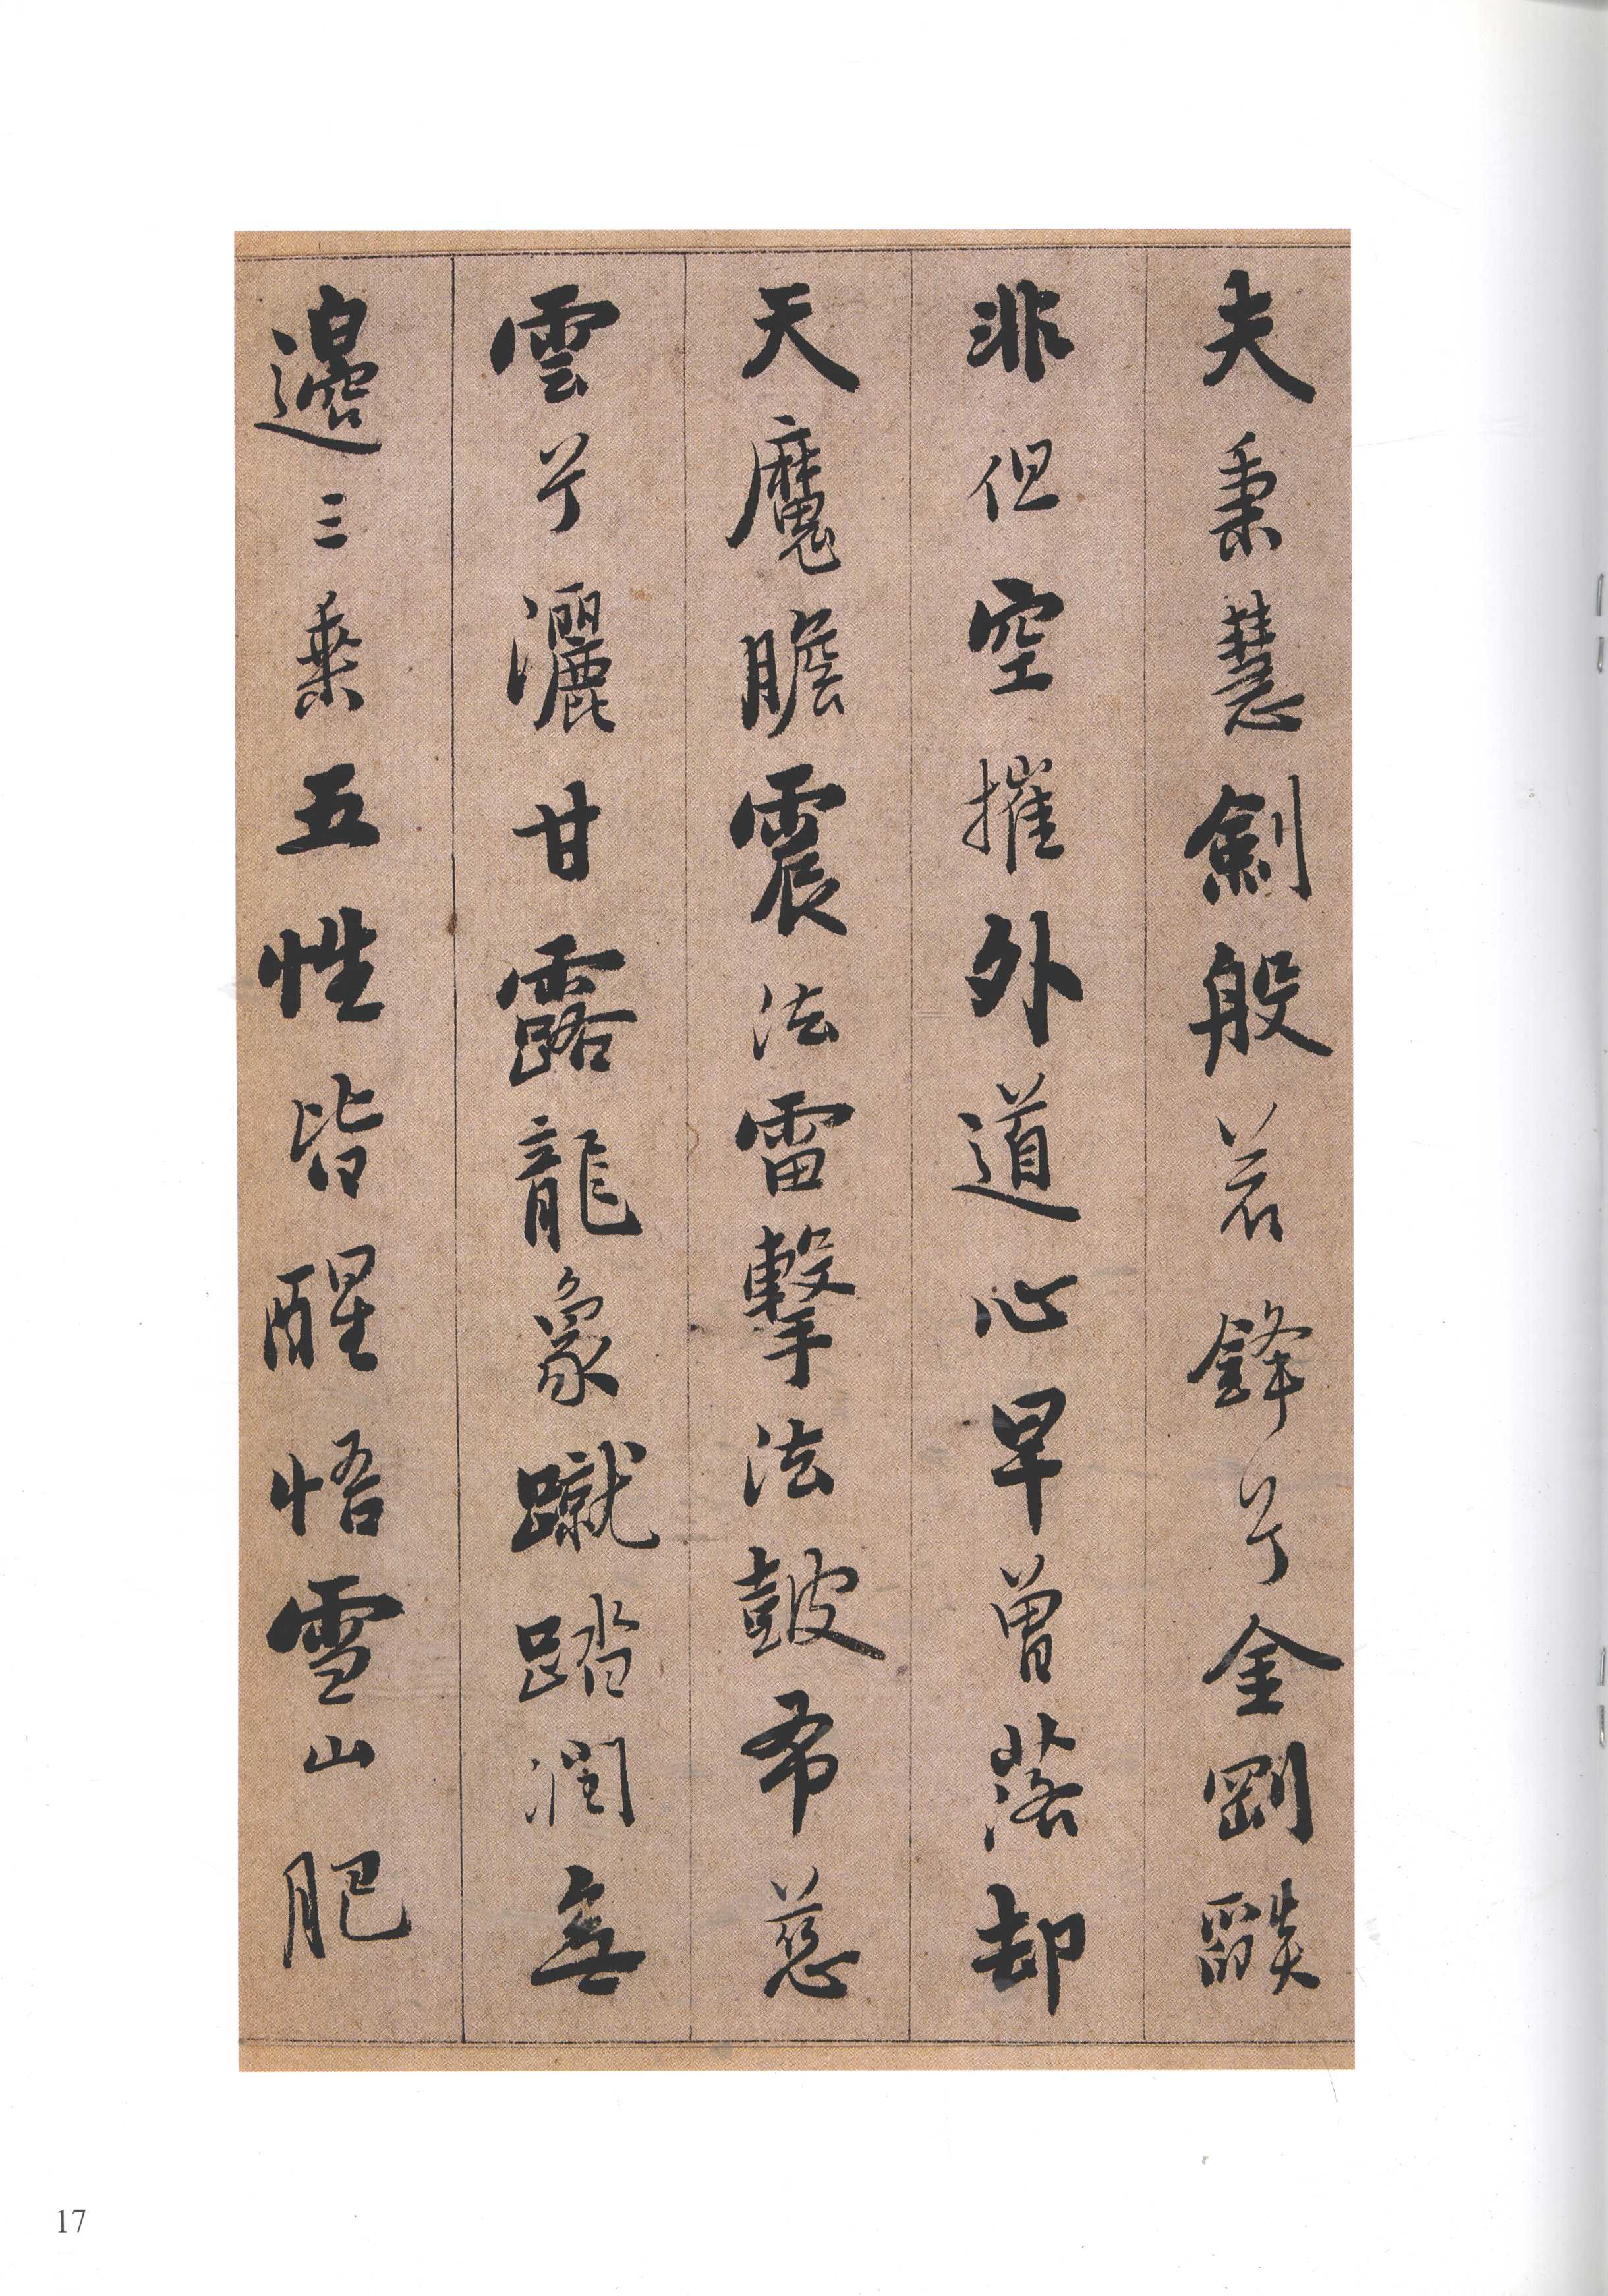 夫秉慧劍般若鋒兮金剛燄
非但空摧外道心早曾落却
天魔膽震法雷擊法鼓布慈
雲兮灑甘露龍象蹴踏潤無
邊三乘五性皆醒悟雪山肥
17